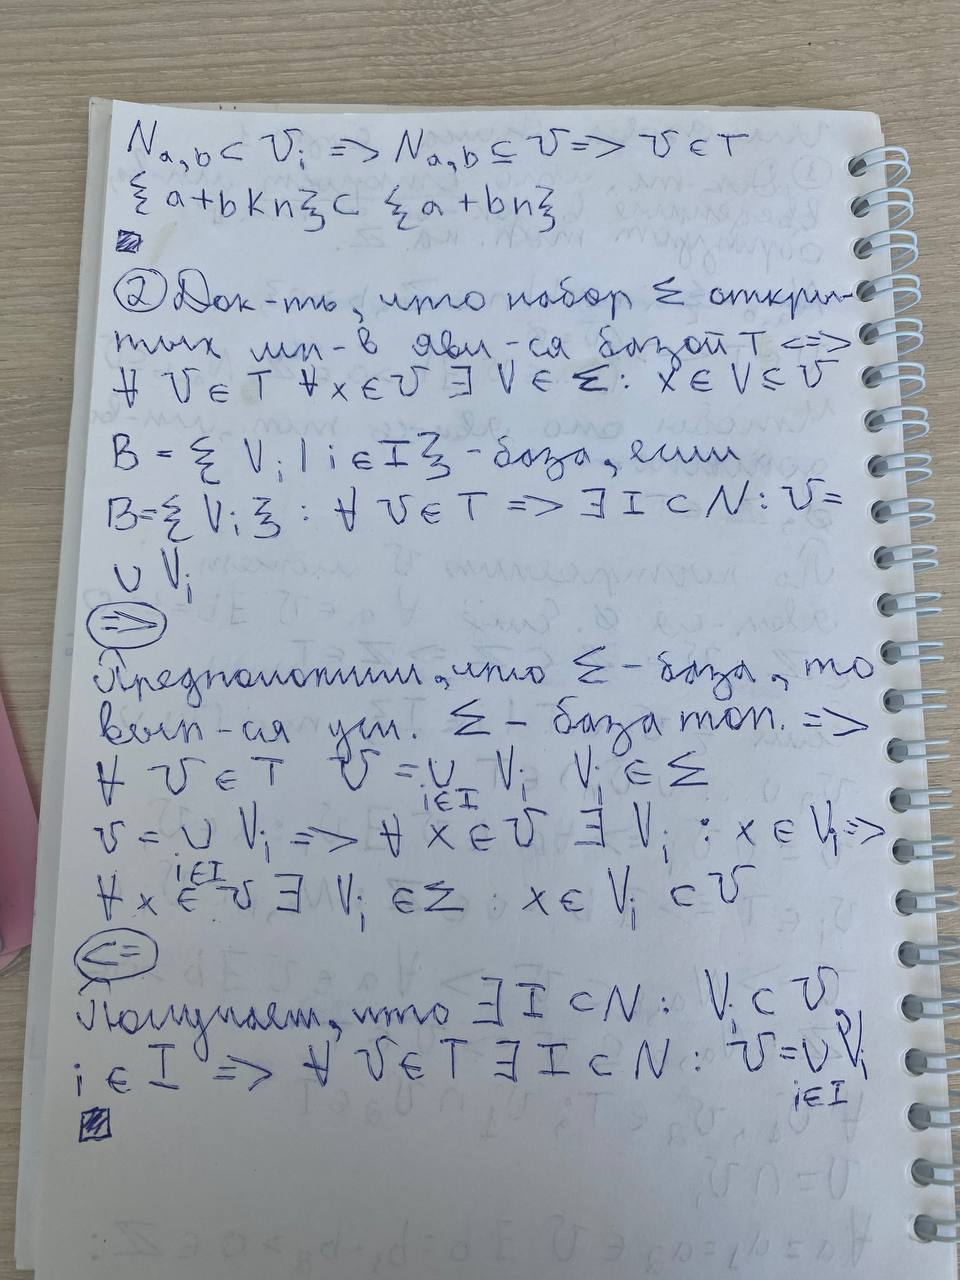 N a,b ⊂ U i => N a,b ⊆ U => U ∈ T
{a+bkn} ⊂ {a+bn}
② Док-ть, что набор Σ откры-
тых мн-в явл-ся базой T <=>
∀ U ∈ T ∀ x ∈ U ∃ V ∈ Σ: x ∈ V ⊆ U
B = { V i | i ∈ I } - база, если
B = { V i } : ∀ U ∈ T => ∃ I ⊂ N : U =
∪ V i
=>
Предположим, что Σ - база, то
вып-ся усл. Σ - база топ. =>
∀ U ∈ T U = ∪ V i V i ∈ Σ
i ∈ I
U = ∪ V i => ∀ x ∈ U ∃ V i : x ∈ V i =>
i ∈ I
∀ x ∈ U ∃ V i ∈ Σ : x ∈ V i ⊂ U
<=
Получаем, что ∃ I ⊂ N : V i ⊂ U,
i ∈ I => ∀ U ∈ T ∃ I ⊂ N : U = ∪ V i
i ∈ I